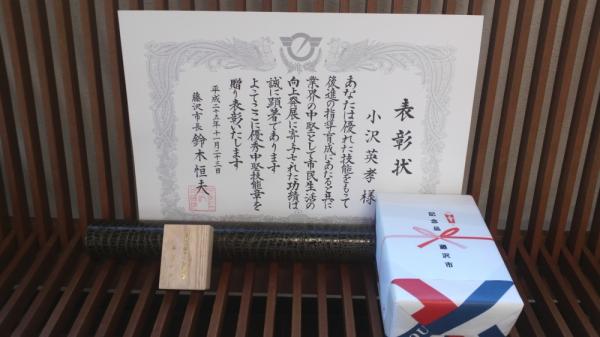 表彰状
小沢英孝様
あなたは優れた技能をもって
後進の指導育成にあたると共に
業界の中堅として市民生活の
向上発展に寄与された功績は
誠に顕著であります
よってここに優秀中堅技能章を
贈り表彰いたします
平成二十五年十一月二十三日
藤沢市長 鈴木恒夫
記念品
藤沢市